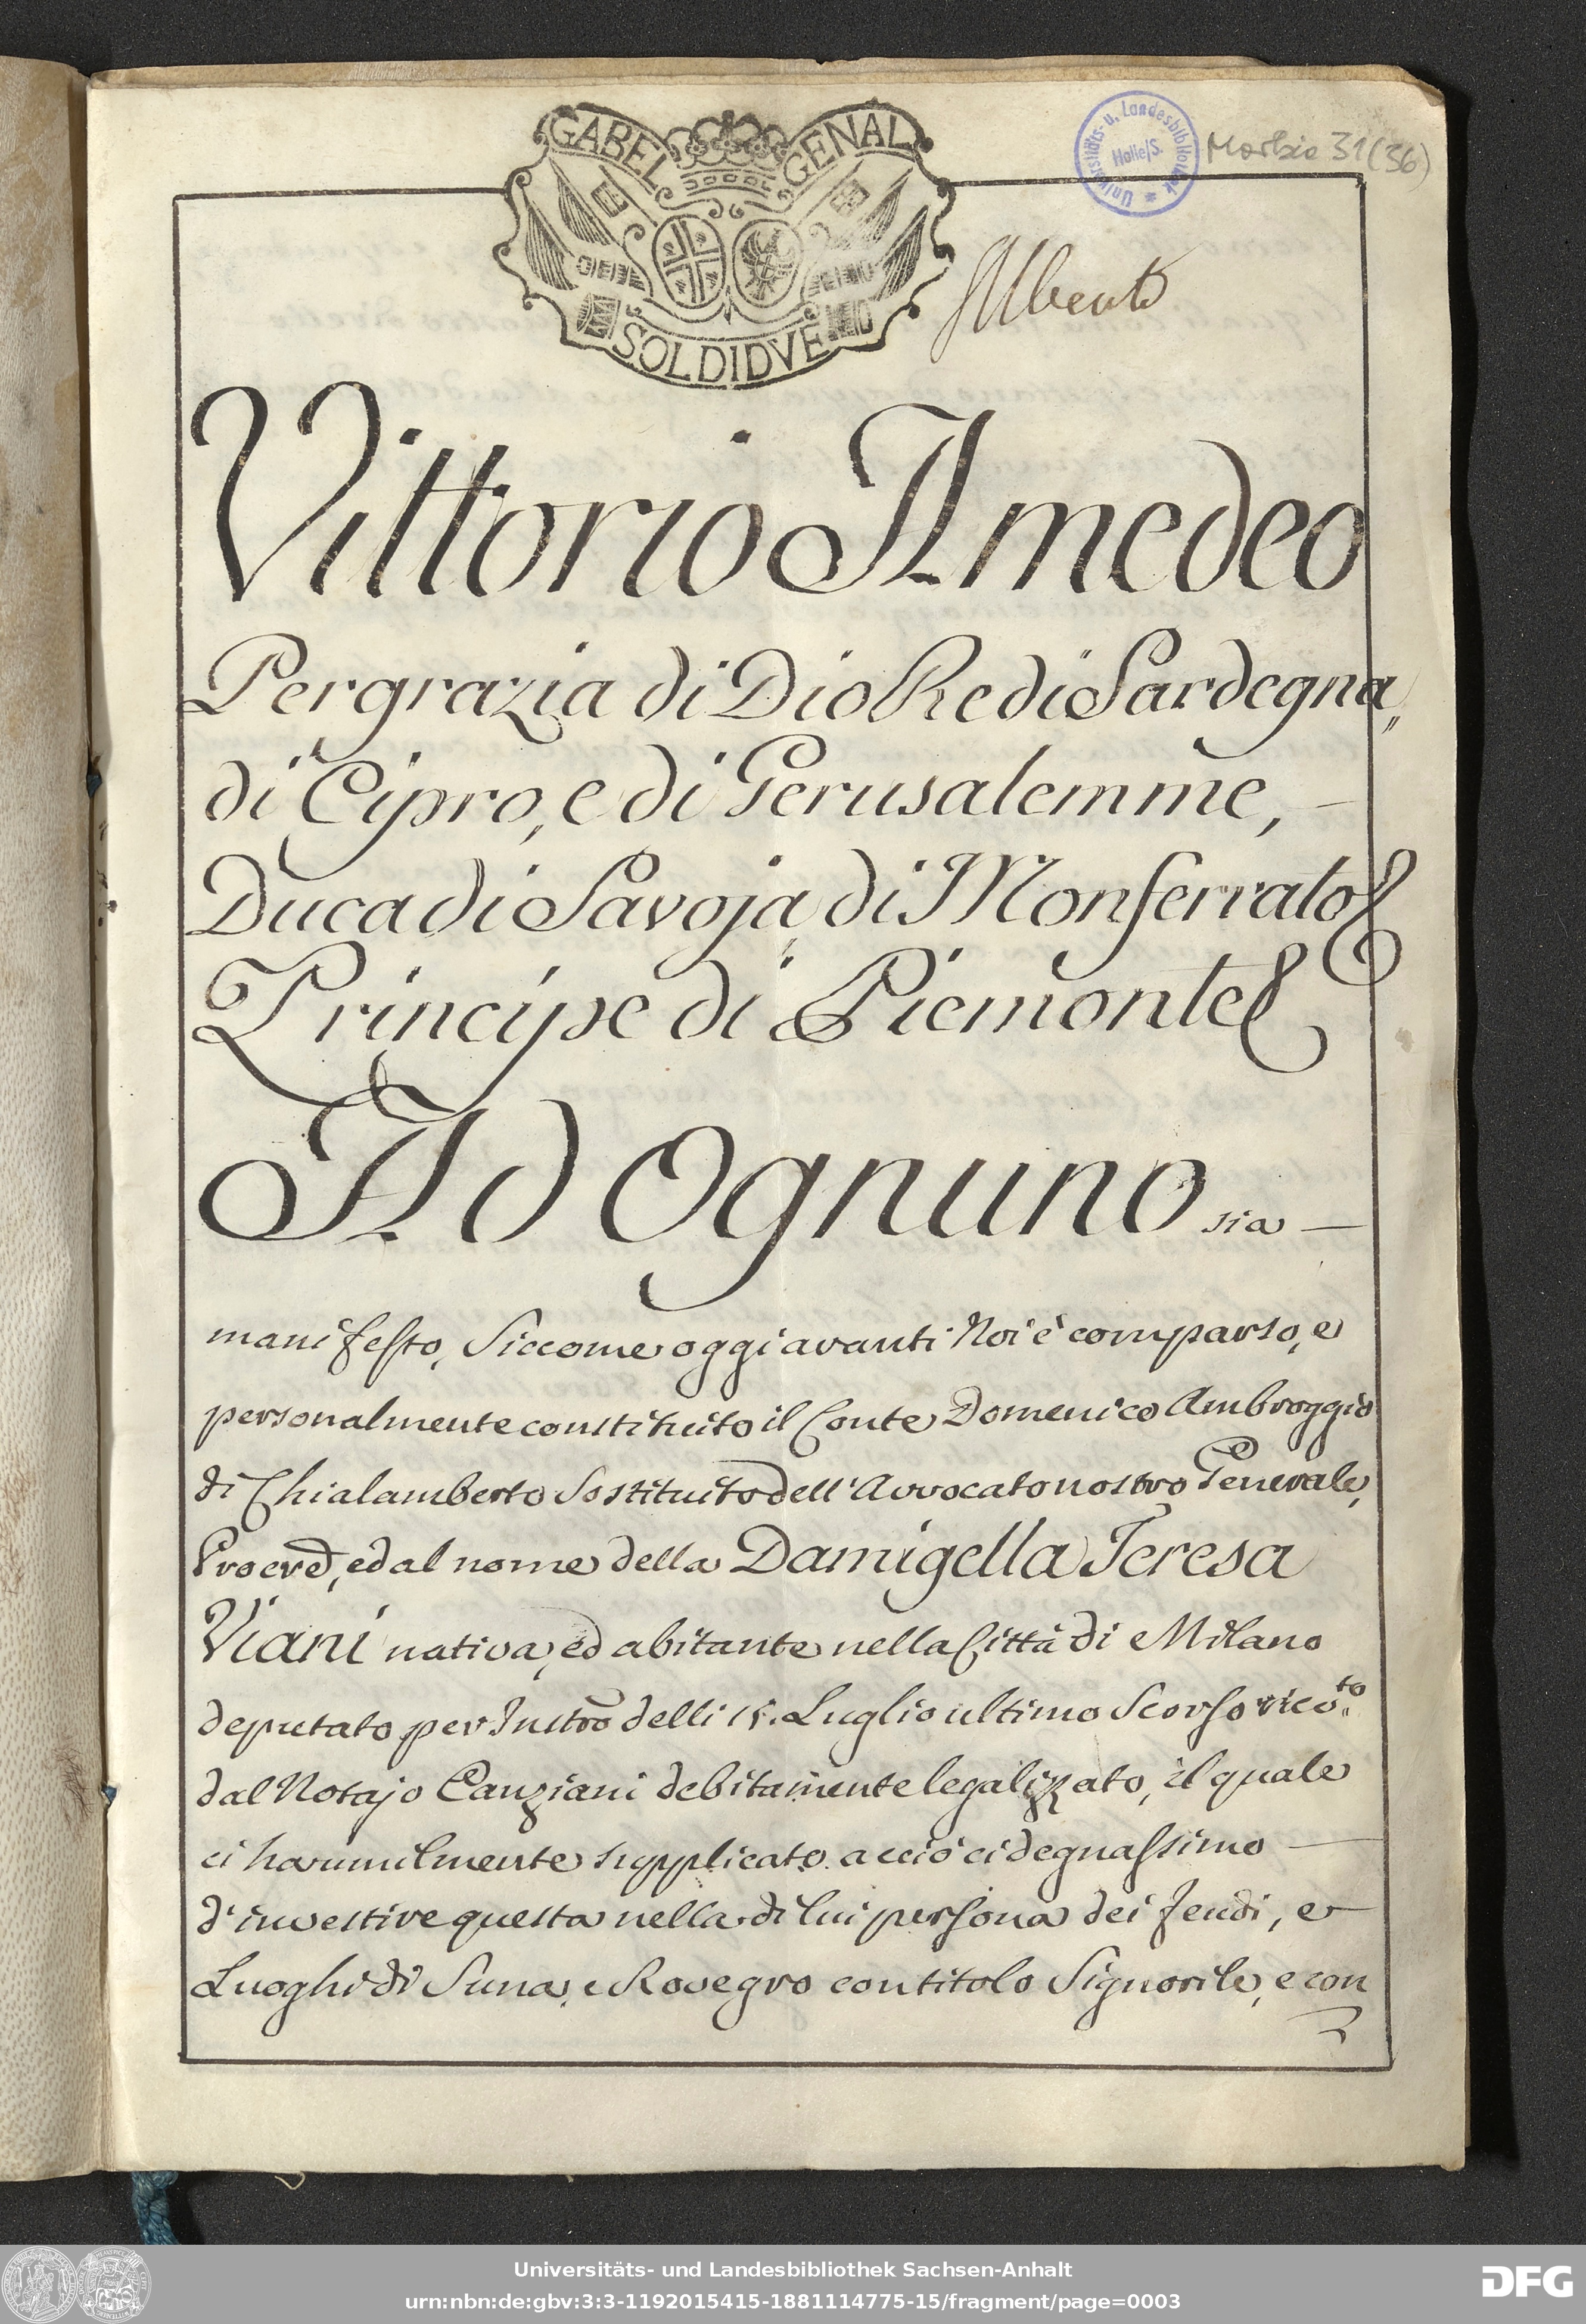 GABEL GENAL
SOLDI DVE
Universitäts- u. Landesbibliothek
Halle/S.
Morbio 31 (36)
Vittorio Amedeo
Per grazia di Dio Re di Sardegna,
di Cipro, e di Gerusalemme, —
Duca di Savoja, di Monferrato &
Principe di Piemonte &
Ad Ognuno sia —
manifesto, Siccome oggi avanti Noi è comparso, e
personalmente constituito il Conte Domenico Ambroggio
di Chialamberto Sostituito dell'Avvocato nostro Generale,
ed al nome della Damigella Teresa
Viani nativa, ed abitante nella Città di Milano
deputato per Instro delli 15. Luglio ultimo Scorso ricº.to
dal Notajo Canziani debitamente legalizzato, il quale
ci ha umilmente supplicato acciò ci degnassimo —
d'investire questa nella di lui persona dei feudi, e
Luoghi di Suna, e Rovegro con titolo Signorile, e con
Universitäts- und Landesbibliothek Sachsen-Anhalt
urn:nbn:de:gbv:3:3-1192015415-1881114775-15/fragment/page=0003
DFG